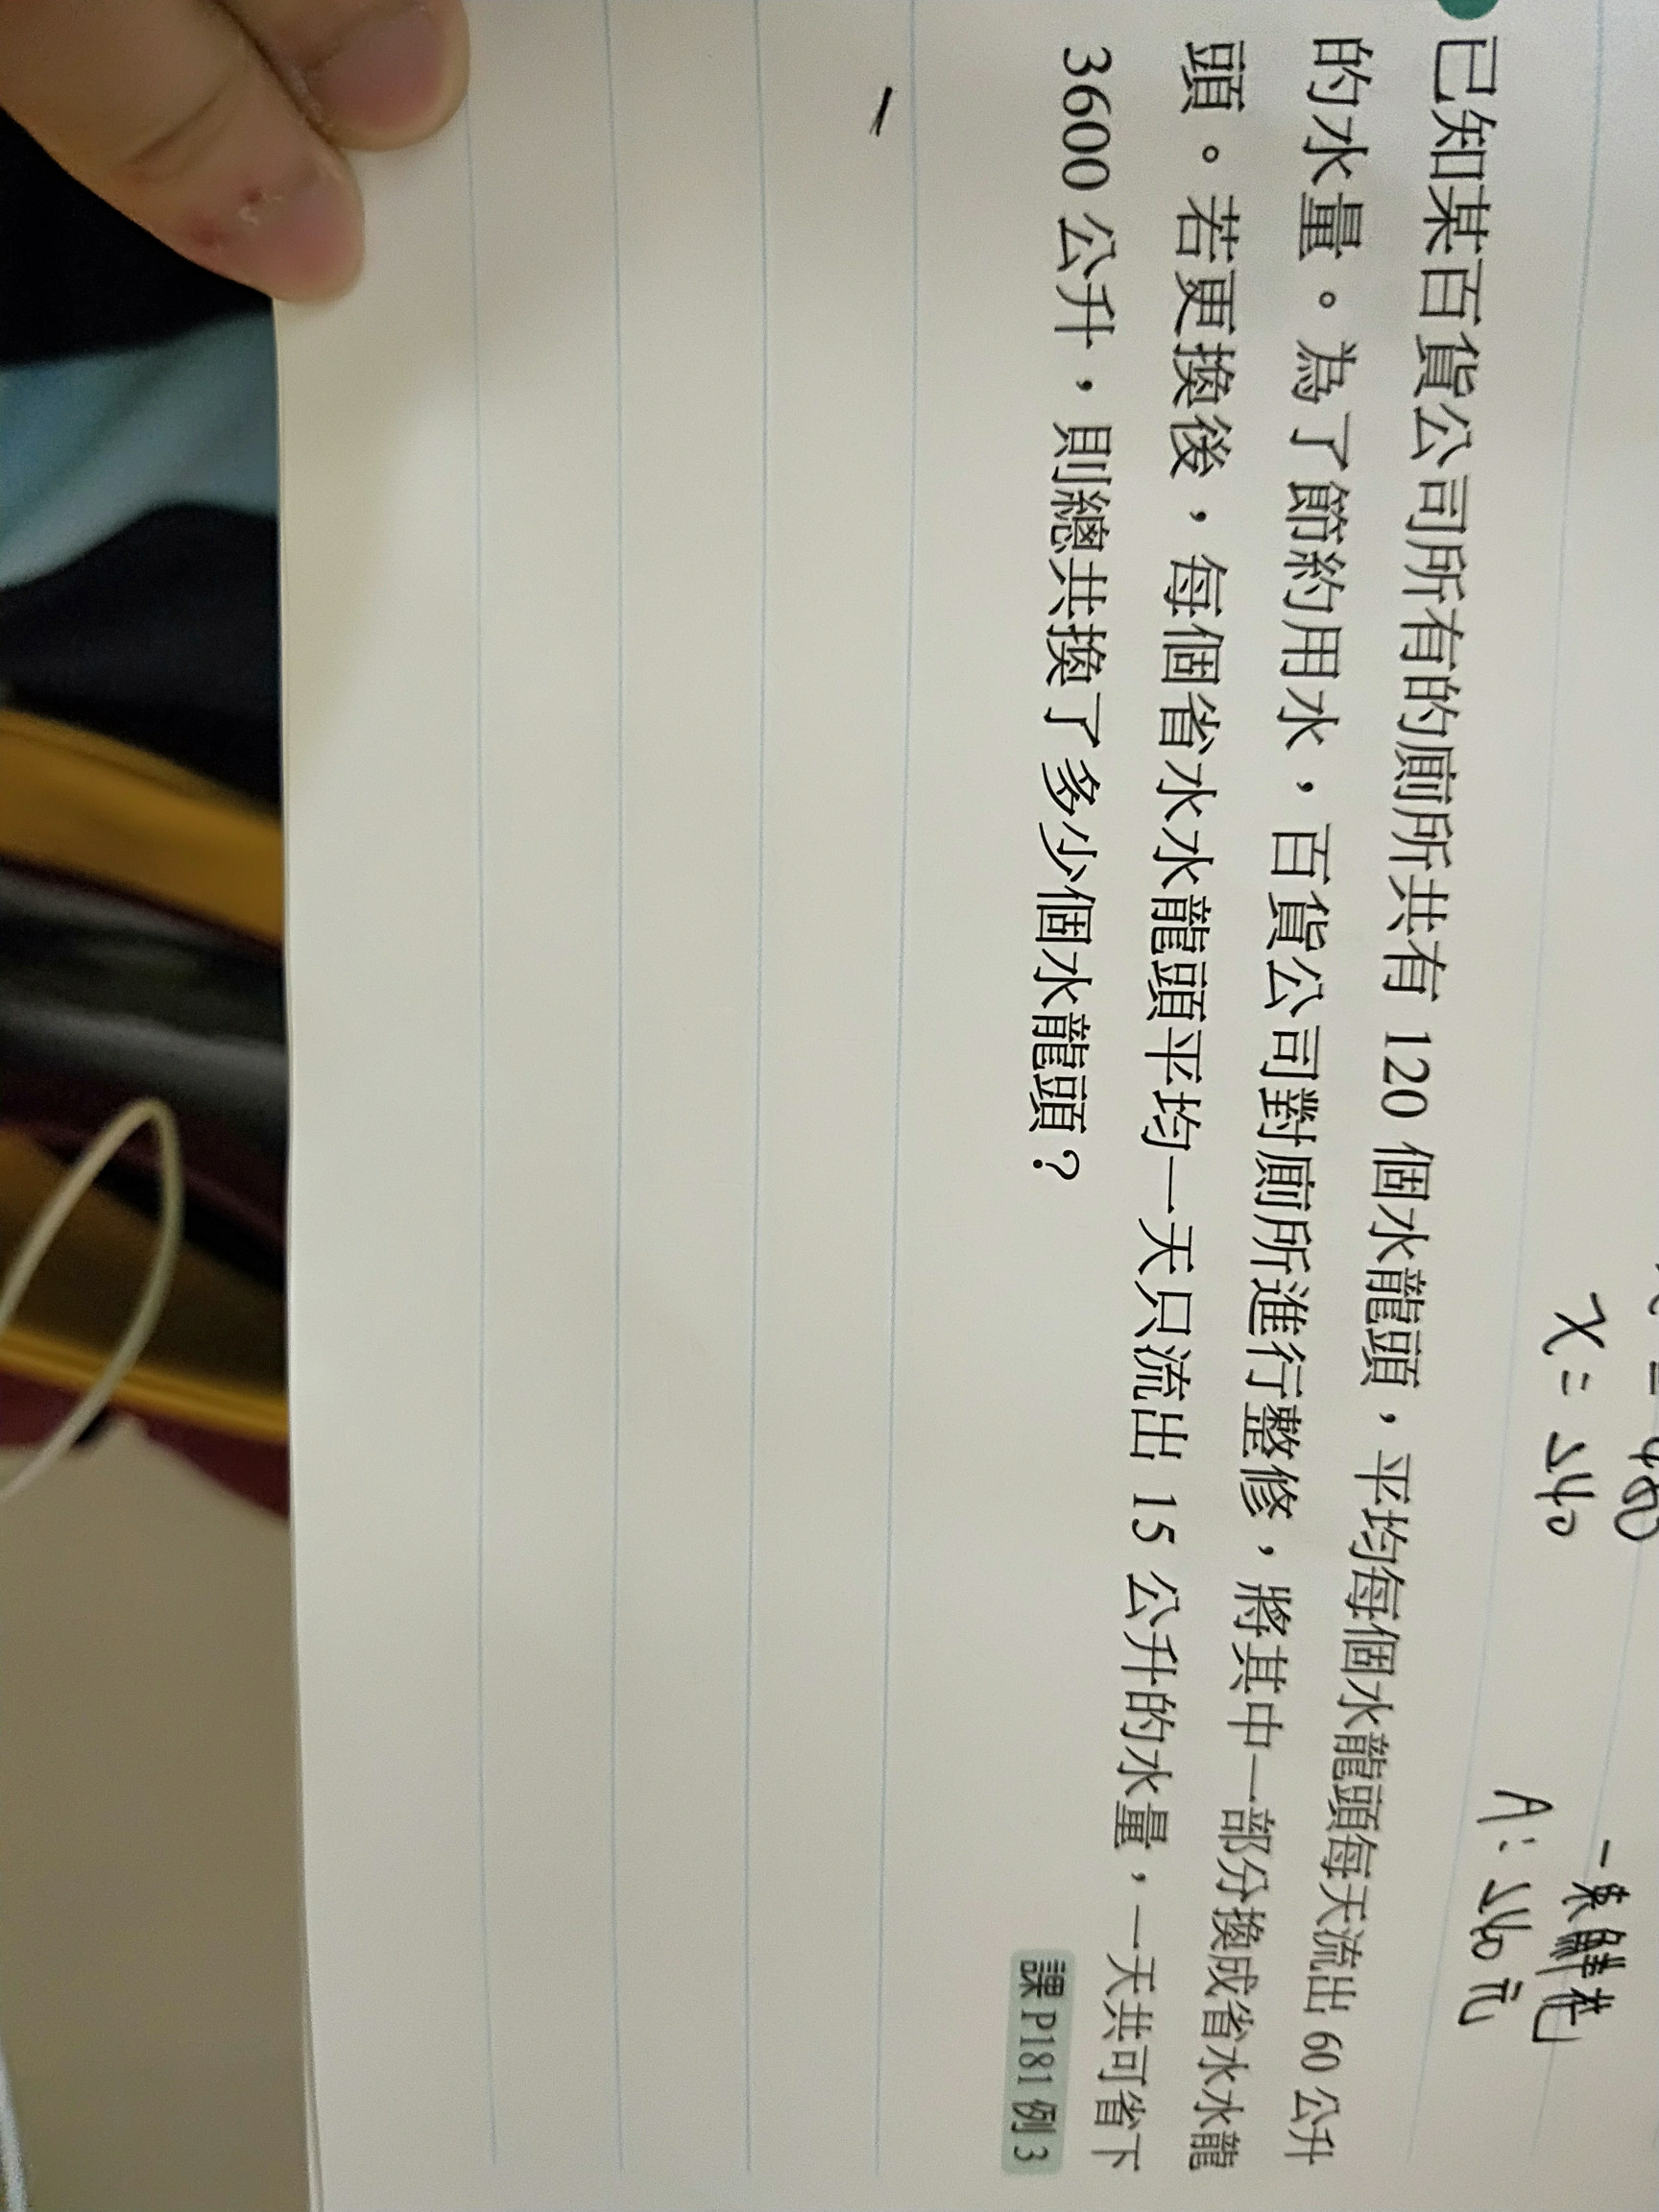 x = 540
一束鮮花
A: 540元
已知某百貨公司所有的廁所共有 120 個水龍頭，平均每個水龍頭每天流出 60 公升
的水量。為了節約用水，百貨公司對廁所進行整修，將其中一部分換成省水水龍
頭。若更換後，每個省水水龍頭平均一天只流出 15 公升的水量，一天共可省下
3600 公升，則總共換了多少個水龍頭？
課 P181 例 3